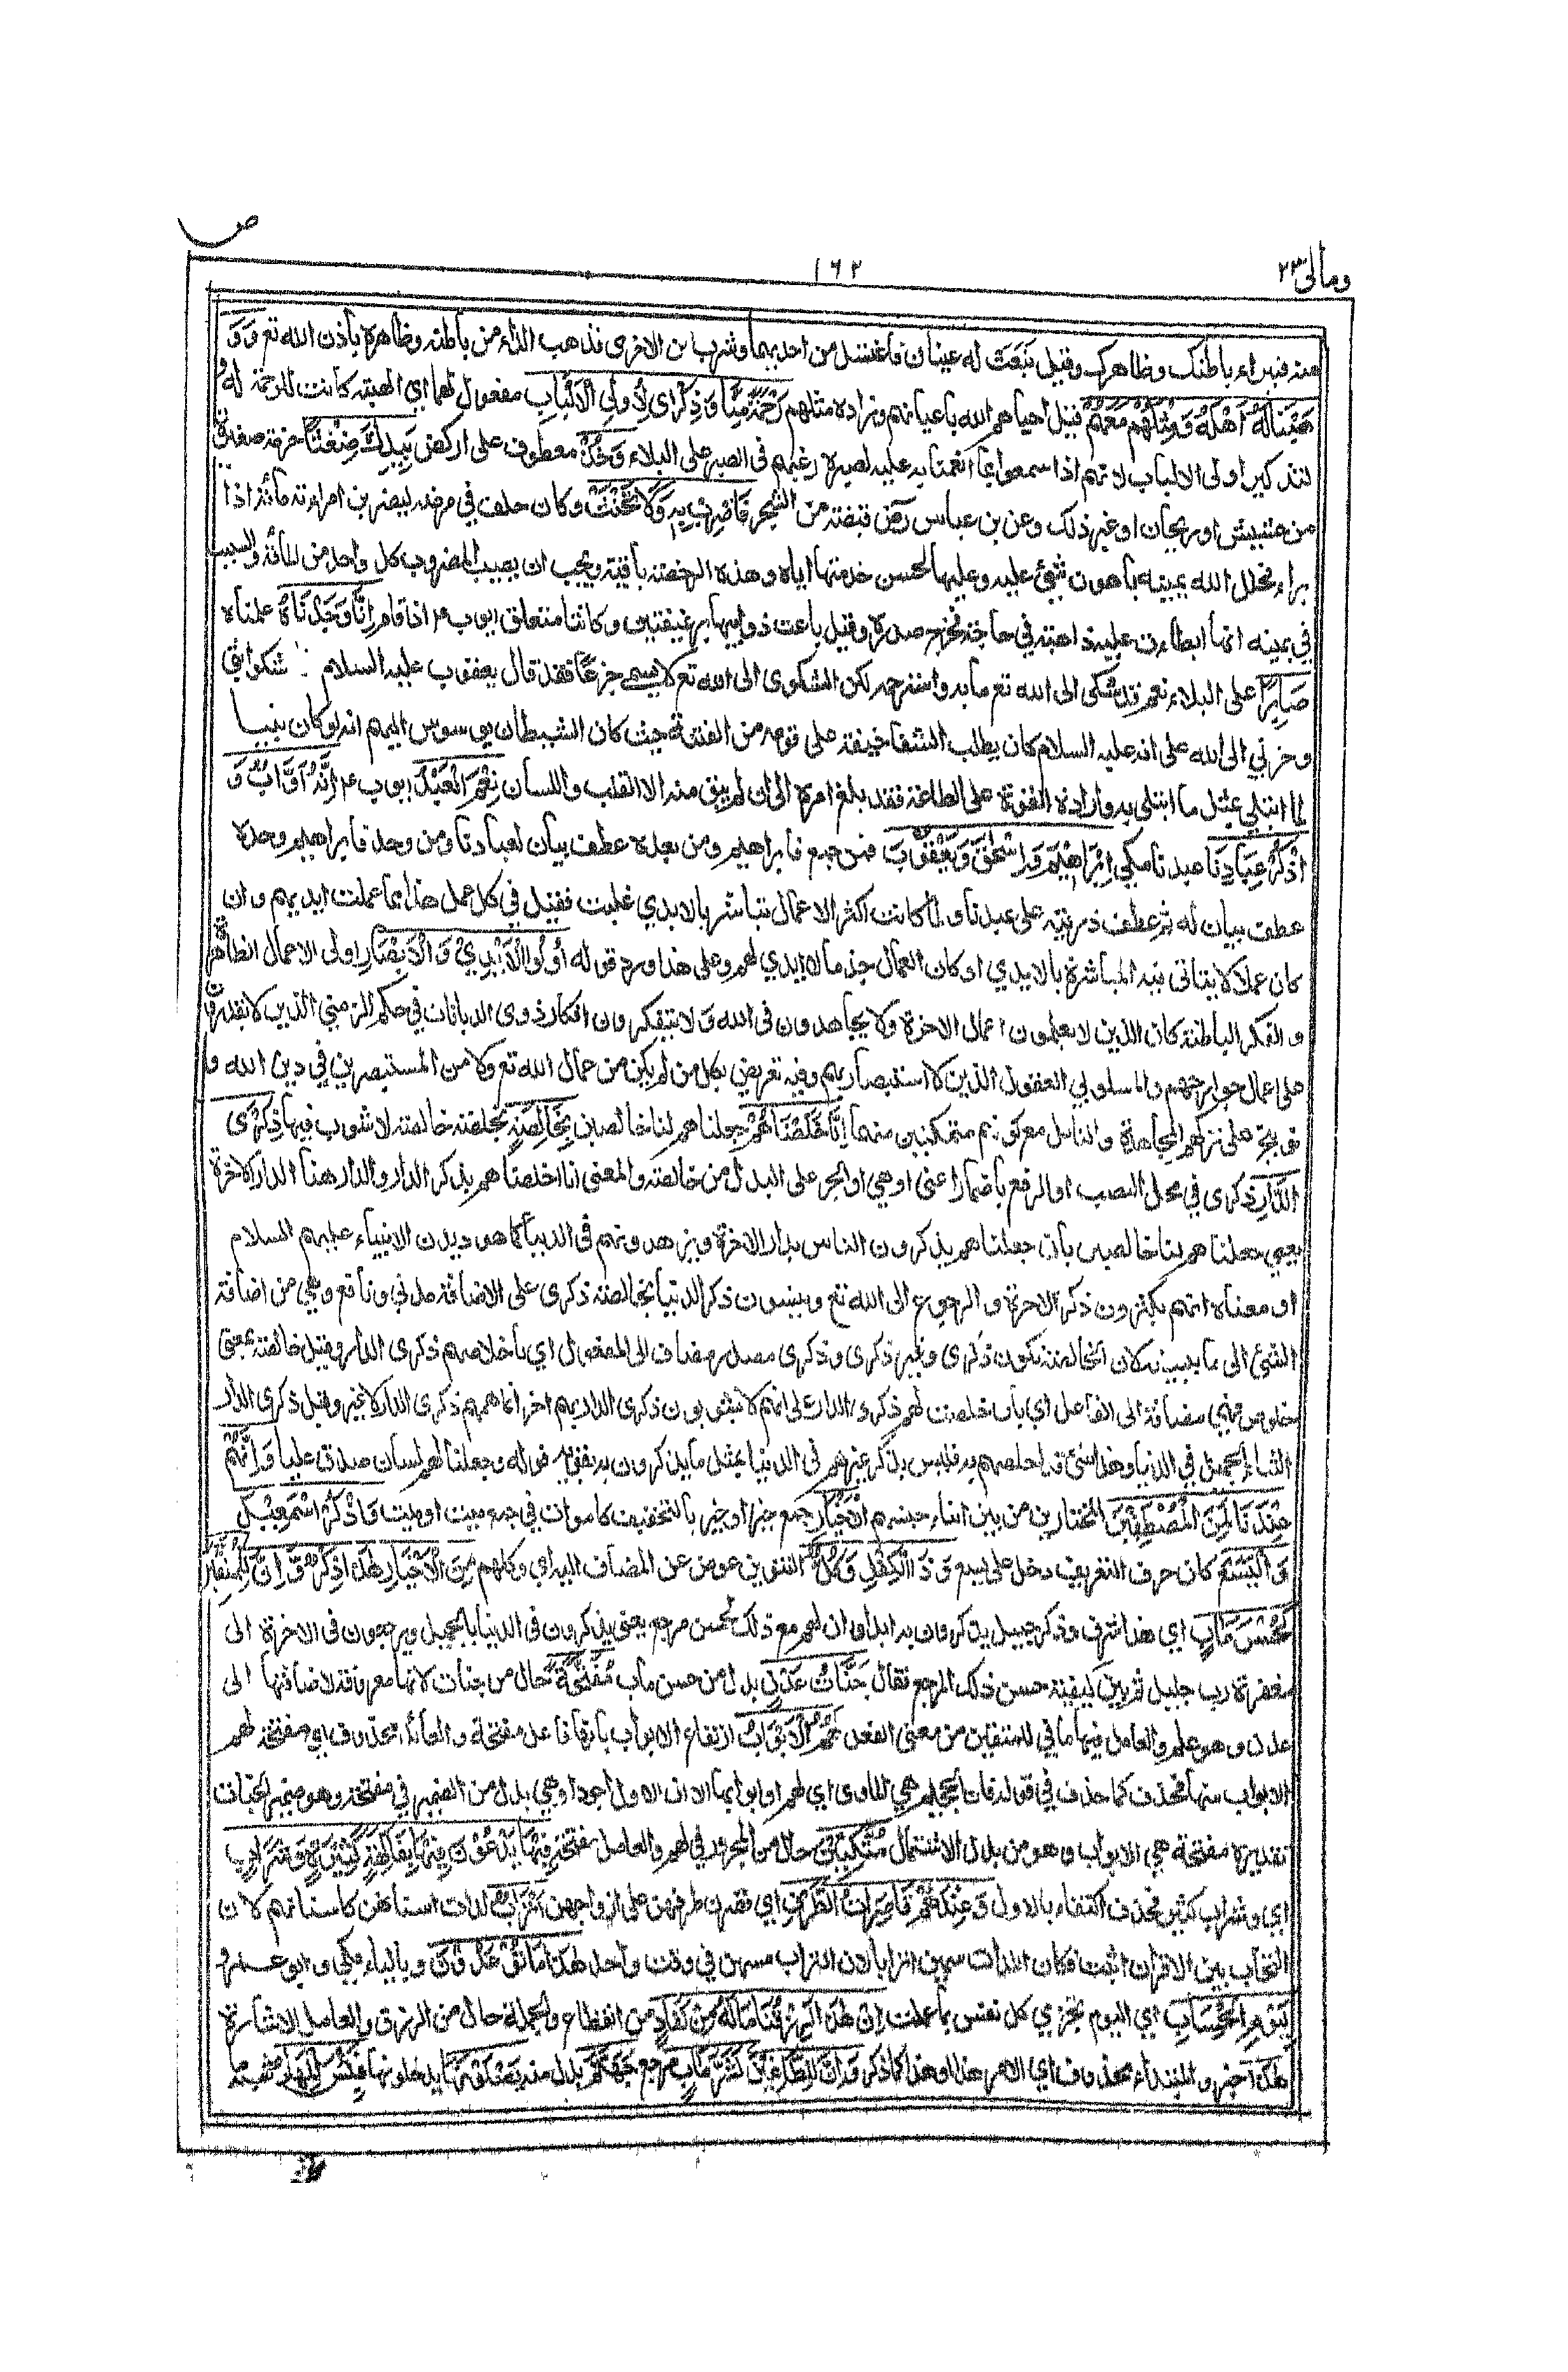 ومالى ٢٣
١٦٢
ص
منه فيبراء باطنك وظاهرك وقيل نبعت له عينان فاغتسل من احديهما وشرب من الاخرى فذهب الداء من باطنه وظاهره باذن الله تع وَوَ
هَبْنَا لَهُ اَهْلَهُ وَمِثْلَهُمْ مَعَهُمْ قيل احياهم الله باعيانهم وزاده مثلهم رَحْمَةً مِنَّا وَذِكْرَى لِأُولِي الْاَلْبَابِ مفعول لهما اي الهبة كانت للرحمة له و
لتذكير اولى الالباب لانهم اذا سمعوا بما انعمنا به عليه لصبره رغبهم فى الصبر على البلاء وَخُذْ معطوف على اركض بِيَدِكَ ضِغْثًا حزمة صغيرة
من حشيش او ريحان او غير ذلك وعن بن عباس رض قبضة من الشجر فَاضْرِبْ بِهِ وَلَا تَحْنَثْ وكان حلف في مرضه ليضربن امراءته مائة اذا
براء فحلل الله يمينه باهون شئ عليه وعليها لحسن خدمتها اياه وهذه الرخصة باقية ويجب ان يصيب المضروب كل واحد من المائة والسبب
في يمينه انها ابطاءت عليه ذاهبة في حاجة فخرج صدره وقيل باعت ذوابيها برغيفين وكانتا متعلق ايوب ع اذا قام اِنَّا وَجَدْنَاهُ علمناه
صَابِرًا على البلاء نعم قد شكى الى الله تع ما به واسترحمه لكن الشكوى الى الله تع لا يسمى جزعا فقد قال يعقوب عليه السلام انما اشكوا بثي
وحزني الى الله على انه عليه السلام كان يطلب الشفا خيفة على قومه من الفتنة حيث كان الشيطان يوسوس اليهم انه لو كان نبيا
لما ابتلي بمثل ما ابتلى به وارادة القوة على الطاعة فقد بلغ امره الى ان لم يبق منه الا القلب واللسان نِعْمَ الْعَبْدُ ايوب ع اِنَّهُ اَوَّابٌ وَ
اذْكُرْ عِبَادَنَا عبدنا مكي اِبْرَاهِيْمَ وَاِسْحٰقَ وَيَعْقُوْبَ فمن جمع فابراهيم ومن بعده عطف بيان لعبادنا ومن وحد فابراهيم وحده
عطف بيان له ثم عطف ذريته على عبدنا ولما كانت اكثر الاعمال تباشر بالايدي غلبت فقيل في كل عمل هذا مما عملت ايديهم وان
كان عملا لا يتاتى فيه المباشرة بالايدي او كان العمال جذما لا ايدي لهم وعلى هذا ورد قوله اُولُوا الْاَيْدِيْ وَالْاَبْصَارِ اولى الاعمال الظاهرة
والفكر الباطنة كان الذين لا يعملون اعمال الاخرة ولا يجاهدون فى الله ولا يتفكرون افكار ذوى الديانات في حكم الزمنى الذين لا يقدرون
على اعمال جوارحهم والمسلوبي العقول الذين لا استبصار بهم وفيه تعريض بكل من لم يكن من عمال الله تع ولا من المستبصرين في دين الله و
توبيخ على تركهم المجاهدة والتامل مع كونهم متمكنين منهما اِنَّا اَخْلَصْنَاهُمْ جعلناهم لنا خالصين بِخَالِصَةٍ بخصلة خالصة لا شوب فيها ذِكْرَى
الدَّارِ ذكرى في محل النصب او الرفع باضمار اعنى او هي او الجر على البدل من خالصة والمعنى انا اخلصناهم بذكر الدار والدار هنا الدار الاخرة
يعني جعلناهم لنا خالصين بان جعلناهم يذكرون الناس بدار الاخرة ويزهدونهم فى الدنيا كما هو ديدن الانبياء عليهم السلام
او معناه انهم يكثرون ذكر الاخرة والرجوع الى الله تع وينسون ذكر الدنيا بخالصة ذكرى على الاضافة مدني ونافع وهي من اضافة
الشئ الى ما يبينه لان الخالصة تكون ذكرى وغير ذكرى وذكرى مصدر مضاف الى المفعول اي باخلاصهم ذكرى الدار وقيل خالصة بمعنى
خلوص فهي مضافة الى الفاعل اي بان خلصت لهم ذكرى الدار على انهم لا يشوبون ذكرى الدار بهم اخر انما همهم ذكرى الدار لا غير وقيل ذكرى الدار
الثناء الجميل في الدنيا وهذا شئ قد اخلصهم به فليس يذكر غيرهم فى الدنيا بمثل ما يذكرون به يقويه قوله وجعلنا لهم لسان صدق عليا وَاِنَّهُمْ
عِنْدَنَا لَمِنَ الْمُصْطَفَيْنَ المختارين من بين ابناء جنسهم الْاَخْيَارِ جمع خير او خير بالتخفيف كاموات في جمع ميت او ميت وَاذْكُرْ اِسْمٰعِيْلَ
وَالْيَسَعَ كان حرف التعريف دخل على يسع وَذَا الْكِفْلِ وَكُلٌّ التنوين عوض عن المضاف اليه اي وكلهم مِنَ الْاَخْيَارِ هٰذَا ذِكْرٌ وَاِنَّ لِلْمُتَّقِيْنَ
لَحُسْنَ مَاٰبٍ اي هذا شرف وذكر جميل يذكرون به ابدا وان لهم مع ذلك لحسن مرجع يعني يذكرون فى الدنيا بالجميل ويرجعون فى الاخرة الى
مغفرة رب جليل ثم بين كيفية حسن ذلك المرجع فقال جَنَّاتُ عَدْنٍ بدل من حسن مآب مُفَتَّحَةً حال من جنات لانها معرفة لاضافتها الى
عدن وهو علم والعامل فيها ما في للمتقين من معنى الفعل لَهُمُ الْاَبْوَابُ ارتفاع الابواب بانها فاعل مفتحة والعائد محذوف اي مفتحة لهم
الابواب منها فحذف كما حذف في قوله فان الجحيم هي الماوى اي لهم او ابوابها الا ان الاول اجود او هي بدل من الضمير في مفتحة وهو ضمير الجنات
تقديره مفتحة هي الابواب وهو من بدل الاشتمال مُتَّكِئِيْنَ حال من المجرور في لهم والعامل مفتحة فِيْهَا يَدْعُوْنَ فِيْهَا بِفَاكِهَةٍ كَثِيْرَةٍ وَشَرَابٍ
اي وشراب كثير فحذف اكتفاء بالاول وَعِنْدَهُمْ قَاصِرَاتُ الطَّرْفِ اي قصرن طرفهن على ازواجهن اَتْرَابٌ لدات اسنانهن كاسنانهم لان
التحاب بين الاقران اثبت كان اللدات سمين اترابا لان التراب مسهن في وقت واحد هٰذَا مَا تُوْعَدُوْنَ وبالياء مكي وابو عمرو
لِيَوْمِ الْحِسَابِ اي اليوم تجزي كل نفس بما عملت اِنَّ هٰذَا لَرِزْقُنَا مَا لَهُ مِنْ نَفَادٍ من انقطاع والجملة حال من الرزق والعامل الاشارة
هٰذَا خبر والمبتداء محذوف اي الامر هذا او هذا كما ذكر وَاِنَّ لِلطَّاغِيْنَ لَشَرَّ مَاٰبٍ مرجع جَهَنَّمَ بدل منه يَصْلَوْنَهَا يدخلونها فَبِئْسَ الْمِهَادُ شبه ما